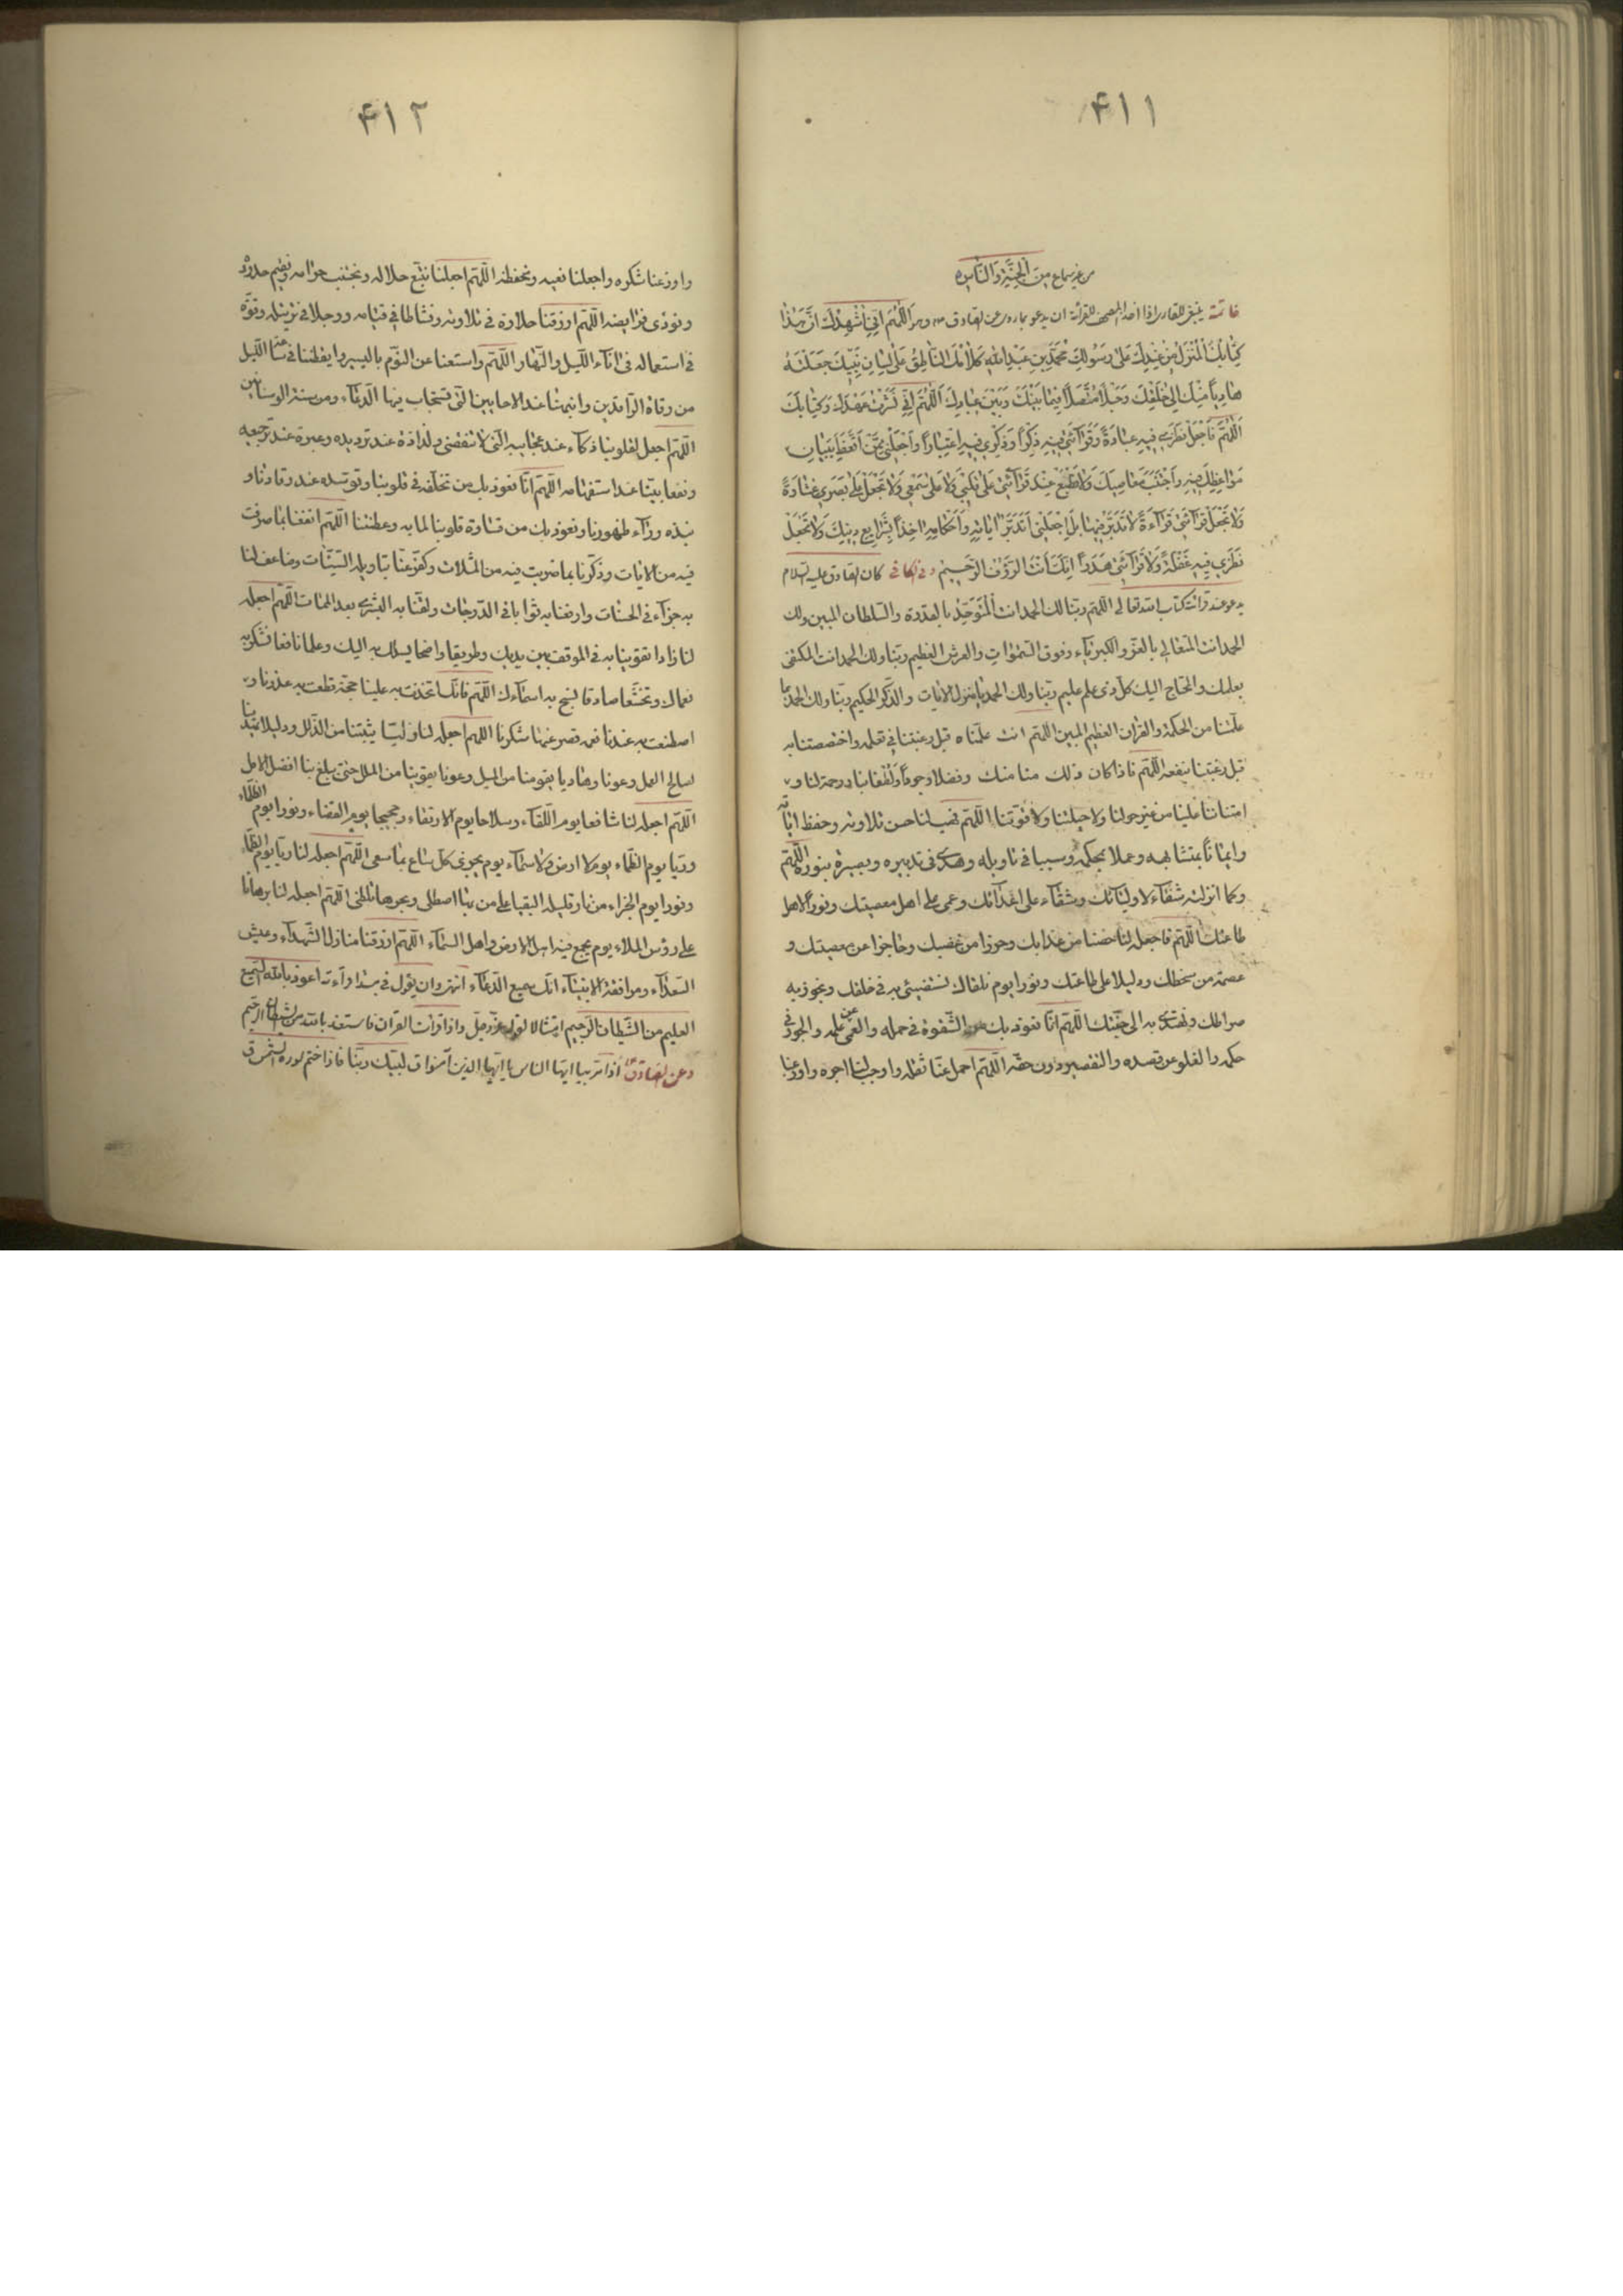 ٤١١
من غير سماع مِنَ الْجِنَّةِ وَالنَّاسِ
خاتمة ينبغي للقاري اذا اخذ المصحف للقرائة ان يدعو بما روي عن الصادق وهو اَللّٰهُمَّ اِنّي اُشْهِدُكَ اَنَّ هٰذٰا
كِتٰابُكَ الْمُنْزَلُ مِنْ عِنْدِكَ عَلىٰ رَسُولِكَ مُحَمَّدِ بْنِ عَبْدِ اللهِ وَكَلاٰمُكَ النّٰاطِقُ عَلىٰ لِسٰانِ نَبِيِّكَ جَعَلْتَهُ
هٰادِياً مِنْكَ اِلىٰ خَلْقِكَ وَحَبْلاً مُتَّصِلاً فيمٰا بَيْنَكَ وَبَيْنَ عِبٰادِكَ اَللّٰهُمَّ اِنّي نَشَرْتُ عَهْدَكَ وَكِتٰابَكَ
اَللّٰهُمَّ فَاجْعَلْ نَظَري فيهِ عِبٰادَةً وَقَرٰائَتي فيهِ ذِكْراً وَفِكْري فيهِ اِعْتِبٰاراً وَاجْعَلْني مِمَّنْ اتَّعَظَ بِبَيٰانِ
مَوٰاعِظِكَ فيهِ وَاجْتَنَبَ مَعٰاصِيَكَ وَلاٰ تَطْبَعْ عِنْدَ قَرٰائَتي عَلىٰ قَلْبي وَلاٰ عَلىٰ سَمْعي وَلاٰ تَجْعَلْ عَلىٰ بَصَري غِشٰاوَةً
وَلاٰ تَجْعَلْ قَرٰائَتي قَرٰاءَةً لاٰ تَدَبُّرَ فيهٰا بَلْ اِجْعَلْني اَتَدَبَّرُ اٰيٰاتِهِ وَاَحْكٰامِهِ اخِذاً بِشَرٰايِعِ دينِكَ وَلاٰ تَجْعَلْ
نَظَري فيهِ غَفْلَةً وَلاٰ قَرٰائَتي هَذَراً اِنَّكَ اَنْتَ الرَّؤُفُ الرَّحيمُ وفي الكافي كان الصادق عليه السلام
يدعو عند قرائة كتاب الله تعالى اللّهم ربنا لك الحمد انت المتوحّد بالقدرة والسلطان المبين ولك
الحمد انت المتعالي بالعزّ والكبرياء وفوق السّموات والعرش العظيم ربّنا ولك الحمد انت المكتفي
بعلمك والمحتاج اليك كلّ ذي علم عليم ربّنا ولك الحمد يا منزل الايات والذّكر الحكيم ربّنا ولك الحمد بما
علّمتنا من الحكمة والقران العظيم المبين اللّهم انت علّمتناه قبل رغبتنا في تعلّمه واختصصتنا به
قبل رغبتنا بنفعه اللّهم فاذا كان ذلك منا منك وفضلا وجودًا ولطفا بنا ورحمة لنا و
امتنانا علينا من غير حولنا ولا حيلتنا ولا قوّتنا اللّهم فحبّب لنا حسن تلاوته وحفظ اياته
وايمانًا بمتشابهه وعملا بمحكمه وسببا في تاويله وهدى في تدبيره وبصيرة بنوره اللّهم
وكما انزلته شفاءً لاوليائك وشقاء على اعدائك وعمى على اهل معصيتك ونورًا لاهل
طاعتك اللّهم فاجعله لنا حصنا من عذابك وحرزا من غضبك وحاجزا عن معصيتك و
عصمة من سخطك ودليلا على طاعتك ونورا يوم نلقاك نستضيئ به في خلقك ونجوز به
صراطك ونهتدي به الى جنّتك اللّهم انّا نعوذ بك من الشّقوة في حمله والعمى عن علمه والجور في
حكمه والغلو عن قصده والتقصير دون حقّه اللّهم احمل عنّا ثقله واوجب لنا اجره واوزعنا
٤١٢
واوزعنا شكره واجعلنا نعيه ونحفظه اللّهم اجعلنا نتّبع حلاله ونجتنب حرامه ونقيم حدوده
ونؤدي فرايضه اللّهم ارزقنا حلاوة في تلاوته ونشاطا في قيامه ووجلا في ترتيله وقوّة
في استعماله في اناء اللّيل والنّهار اللّهم واشفنا عن النّوم باليسير وايقظنا في ساعة اللّيل
من رقاد الرّاقدين وانبهنا عند الاحايين الّتي تستجاب فيها الدّعاء ومن سنة الوسنانين
اللّهم اجعل لقلوبنا ذكاء عند عجايبه الّتي لا تنقضي ولذاذة عند ترديده وعبرة عند ترجيعه
ونفعا بيّنا عند استفهامه اللّهم انّا نعوذ بك من تخلّفه في قلوبنا وتوسّده عند رقادنا و
نبذه وراء ظهورنا ونعوذ بك من قساوة قلوبنا لما به وعظتنا اللّهم انفعنا بما صرفت
فيه من الايات وذكّرنا بما ضربت فيه من المثلات وكفّر عنّا بتاويله السّيّئات وضاعف لنا
به جزاء في الحسنات وارفعنا به ثوابا في الدّرجات ولقّنا به البشرى بعد الممات اللّهم اجعله
لنا زادا تقوّينا به في الموقف بين يديك وطريقا واضحا نسلك به اليك وعلما نافعا نشكر به
نعماك وتخشّعا صادقا نسبّح به اسماءك اللّهم فانّك اتّخذت به علينا حجّة قطعت به عذرنا و
اصطنعت به عندنا نعمة قصر عنها شكرنا اللّهم اجعله لنا وليّا يثبّتنا من الزّلل ودليلا يهدينا
لصالح العمل وعونا وهاديا يقوّمنا من الميل وعونا يقوّينا من الملل حتّى يبلغ بنا افضل الامل
اللّهم اجعله لنا شافعا يوم اللّقاء وسلاحا يوم الارتقاء وحجيجا يوم القضاء ونورا يوم الظلماء
وريّا يوم الظّماء يوم لا ارض ولا سماء يوم يجزى كلّ ساع بما سعى اللّهم اجعله لنا ريّا يوم الظّماء
ونورا يوم الجزاء من نار قليلة البقيا على من بها اصطلى وبحرها تلظّى اللّهم اجعله لنا برهانا
على رؤس الملاء يوم يجمع فيه اهل الارض واهل السّماء اللّهم ارزقنا منازل الشّهداء وعيش
السّعداء ومرافقة الانبياء انّك سميع الدّعاء انتهى وان يقول في ابتداء قرائته اعوذ بالله السّميع
العليم من الشّيطان الرّجيم امتثالا لقوله عزّ وجلّ واذا قرأت القران فاستعذ بالله من الشيطان الرجيم
وعن الصادق اذا مر بيا ايّها النّاس يا ايّها الذين آمنوا قال لبّيك ربّنا فاذا ختم سورة الشمس ق